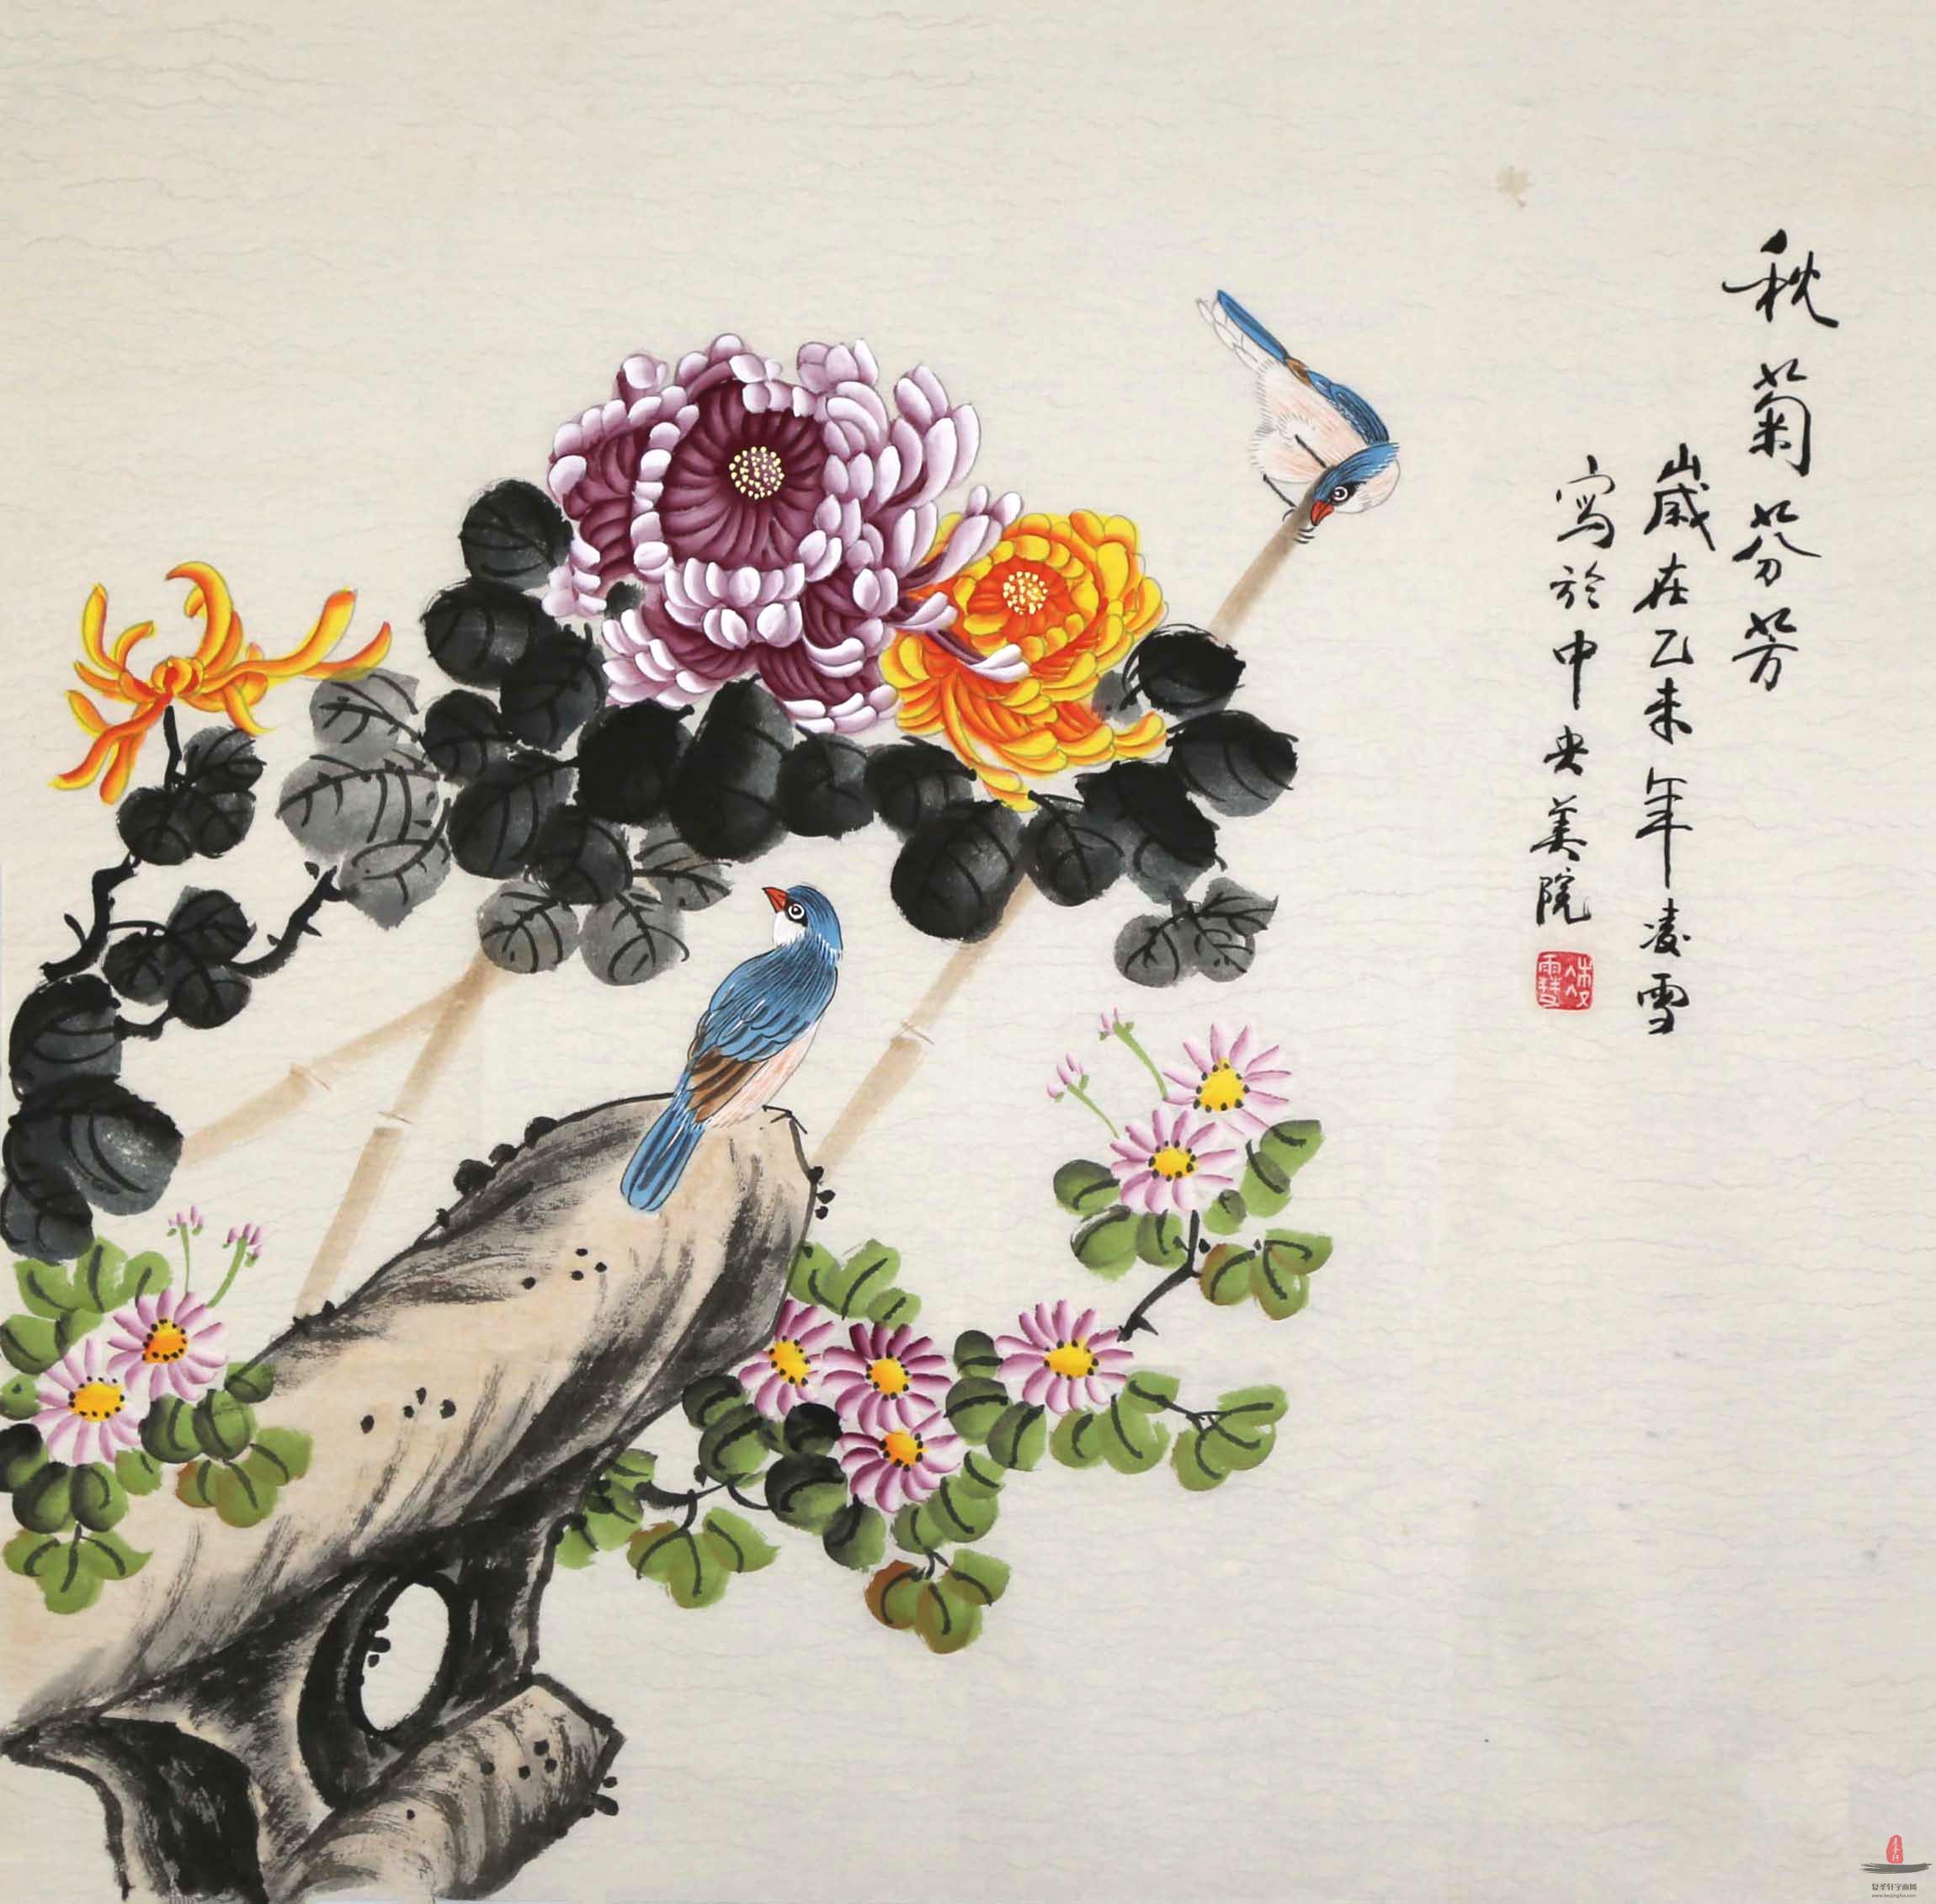 秋菊芬芳
歲在乙未年凌雪
寫於中央美院